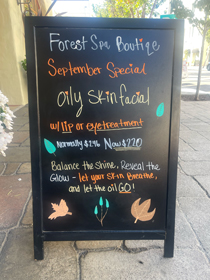 Forest Spa Boutique
September Special
Oily Skin facial
w/ lip or eye treatment
Normally $236 Now $220
Balance the Shine, Reveal the
Glow - let your skin Breathe,
and let the oil GO!